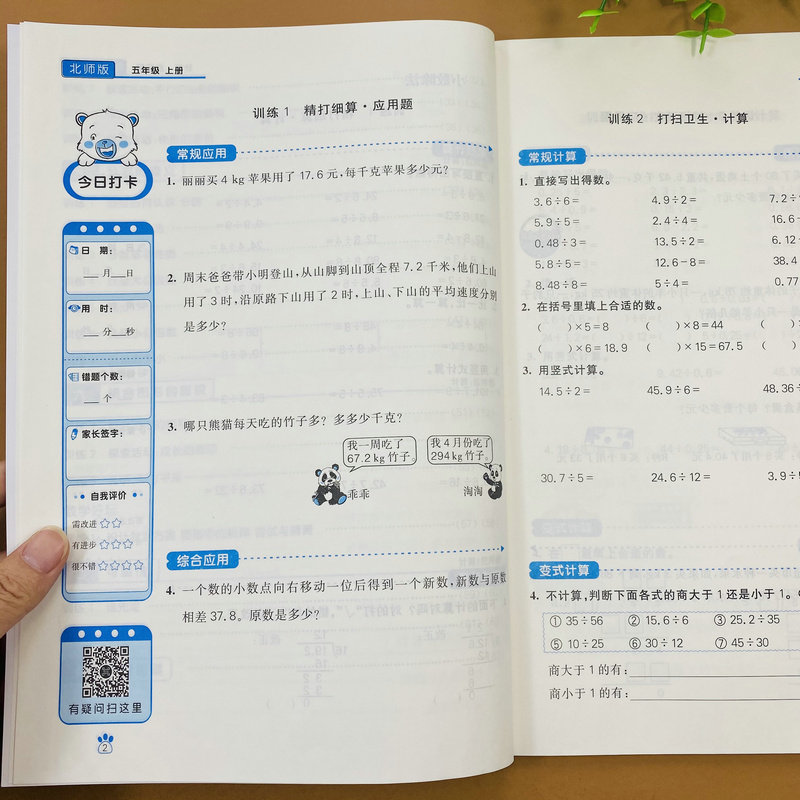 北师版 五年级 上册
今日打卡
日 期:
__月__日
用 时:
__分__秒
错题个数:
__个
家长签字:
自我评价
需改进☆☆
有进步☆☆☆
很不错☆☆☆☆
有疑问扫这里
2
训练 1 精打细算·应用题
常规应用
1. 丽丽买 4 kg 苹果用了 17.6 元,每千克苹果多少元?
2. 周末爸爸带小明登山,从山脚到山顶全程 7.2 千米,他们上山
用了 3 时,沿原路下山用了 2 时,上山、下山的平均速度分别
是多少?
3. 哪只熊猫每天吃的竹子多? 多多少千克?
我一周吃了
67.2 kg 竹子。
乖乖
我 4 月份吃了
294 kg 竹子。
淘淘
综合应用
4. 一个数的小数点向右移动一位后得到一个新数,新数与原数
相差 37.8。原数是多少?
训练 2 打扫卫生·计算
常规计算
1. 直接写出得数。
3.6÷6= 4.9÷2= 7.2÷
5.9÷5= 2.4÷4= 16.6÷
0.48÷3= 13.5÷2= 6.12÷
5.8÷5= 12.6-8= 38.4
8.48÷8= 5÷4= 0.77
2. 在括号里填上合适的数。
( )×5=8 ( )×8=44 (
( )×6=18.9 ( )×15=67.5 (
3. 用竖式计算。
14.5÷2= 45.9÷6= 48.36÷
30.7÷5= 24.6÷12= 3.9÷
变式计算
4. 不计算,判断下面各式的商大于 1 还是小于 1。
① 35÷56 ② 15.6÷6 ③ 25.2÷35
⑤ 10÷25 ⑥ 30÷12 ⑦ 45÷30
商大于 1 的有:
商小于 1 的有: